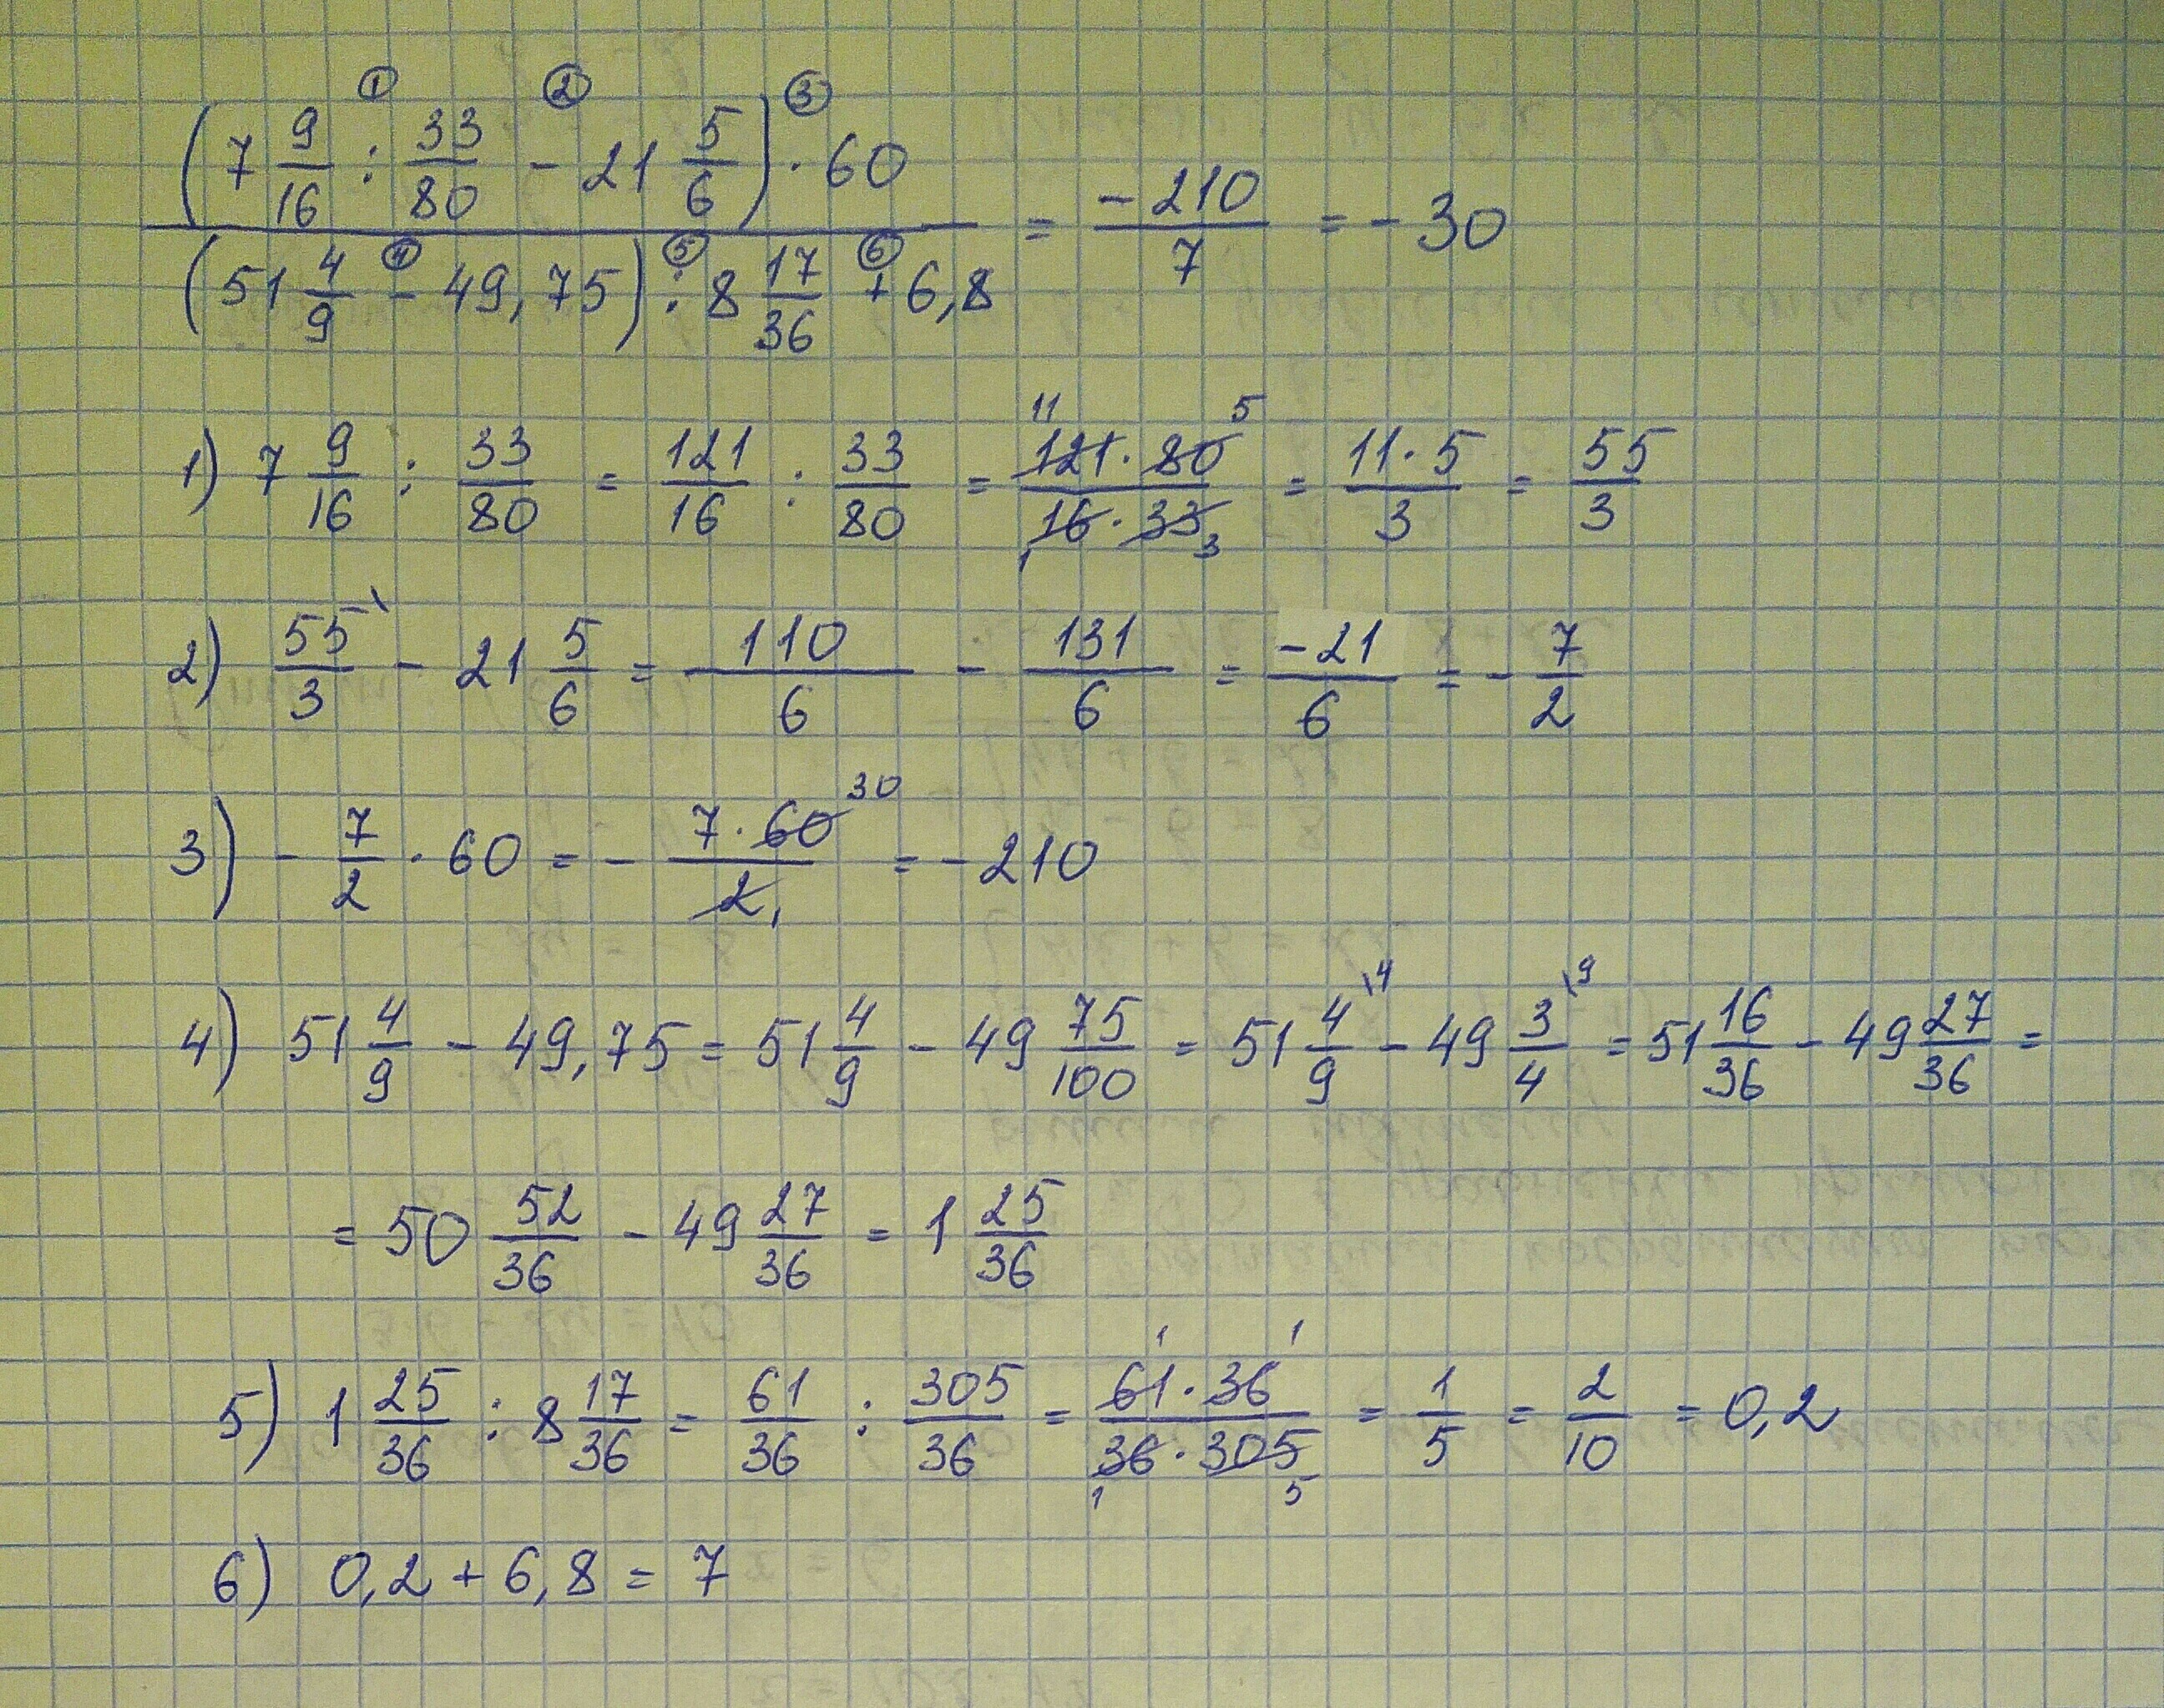 ① ② ③
(7 9/16 : 33/80 - 21 5/6) · 60
④ ⑤ ⑥
(51 4/9 - 49,75) : 8 17/36 + 6,8
= -210/7 = -30
11 5
1) 7 9/16 : 33/80 = 121/16 : 33/80 = 121·80/16·33 = 11·5/3 = 55/3
1 3
2) 55\/3 - 21 5/6 = 110/6 - 131/6 = -21/6 = - 7/2
30
3) - 7/2 · 60 = - 7·60/2 = -210
1
\4 \9
4) 51 4/9 - 49,75 = 51 4/9 - 49 75/100 = 51 4/9 - 49 3/4 = 51 16/36 - 49 27/36 =
= 50 52/36 - 49 27/36 = 1 25/36
1 1
5) 1 25/36 : 8 17/36 = 61/36 : 305/36 = 61·36/36·305 = 1/5 = 2/10 = 0,2
1 5
6) 0,2 + 6,8 = 7